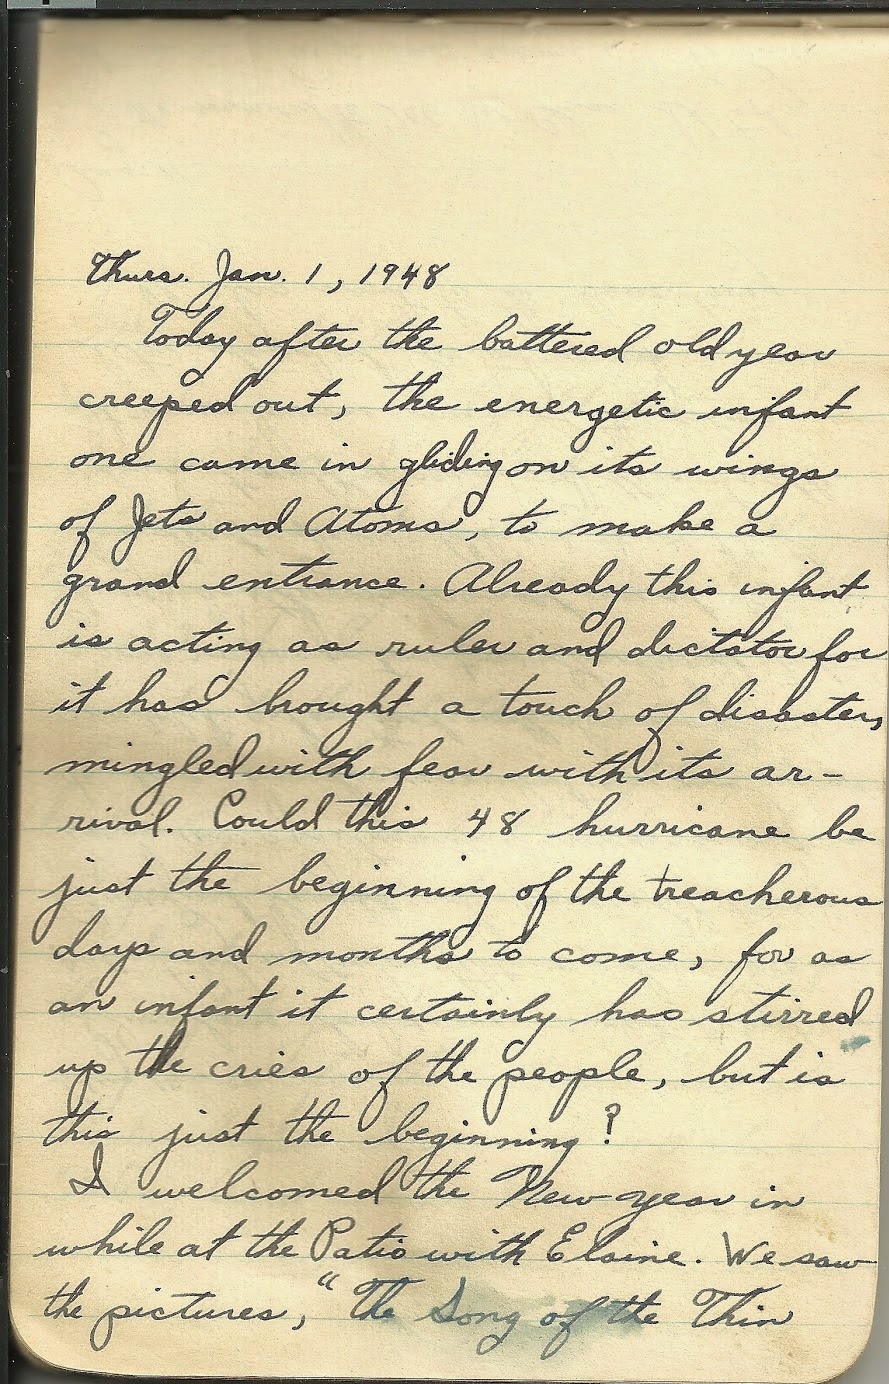 Thurs. Jan. 1, 1948
Today after the battered old year
creeped out, the energetic infant
one came in gliding on its wings
of Jets and Atoms, to make a
grand entrance. Already this infant
is acting as ruler and dictator for
it has brought a touch of disaster,
mingled with fear with its ar-
rival. Could this 48 hurricane be
just the beginning of the treacherous
days and months to come, for as
an infant it certainly has stirred
up the cries of the people, but is
this just the beginning?
I welcomed the New year in
while at the Patio with Elaine. We saw
the pictures, "The Song of the Thin